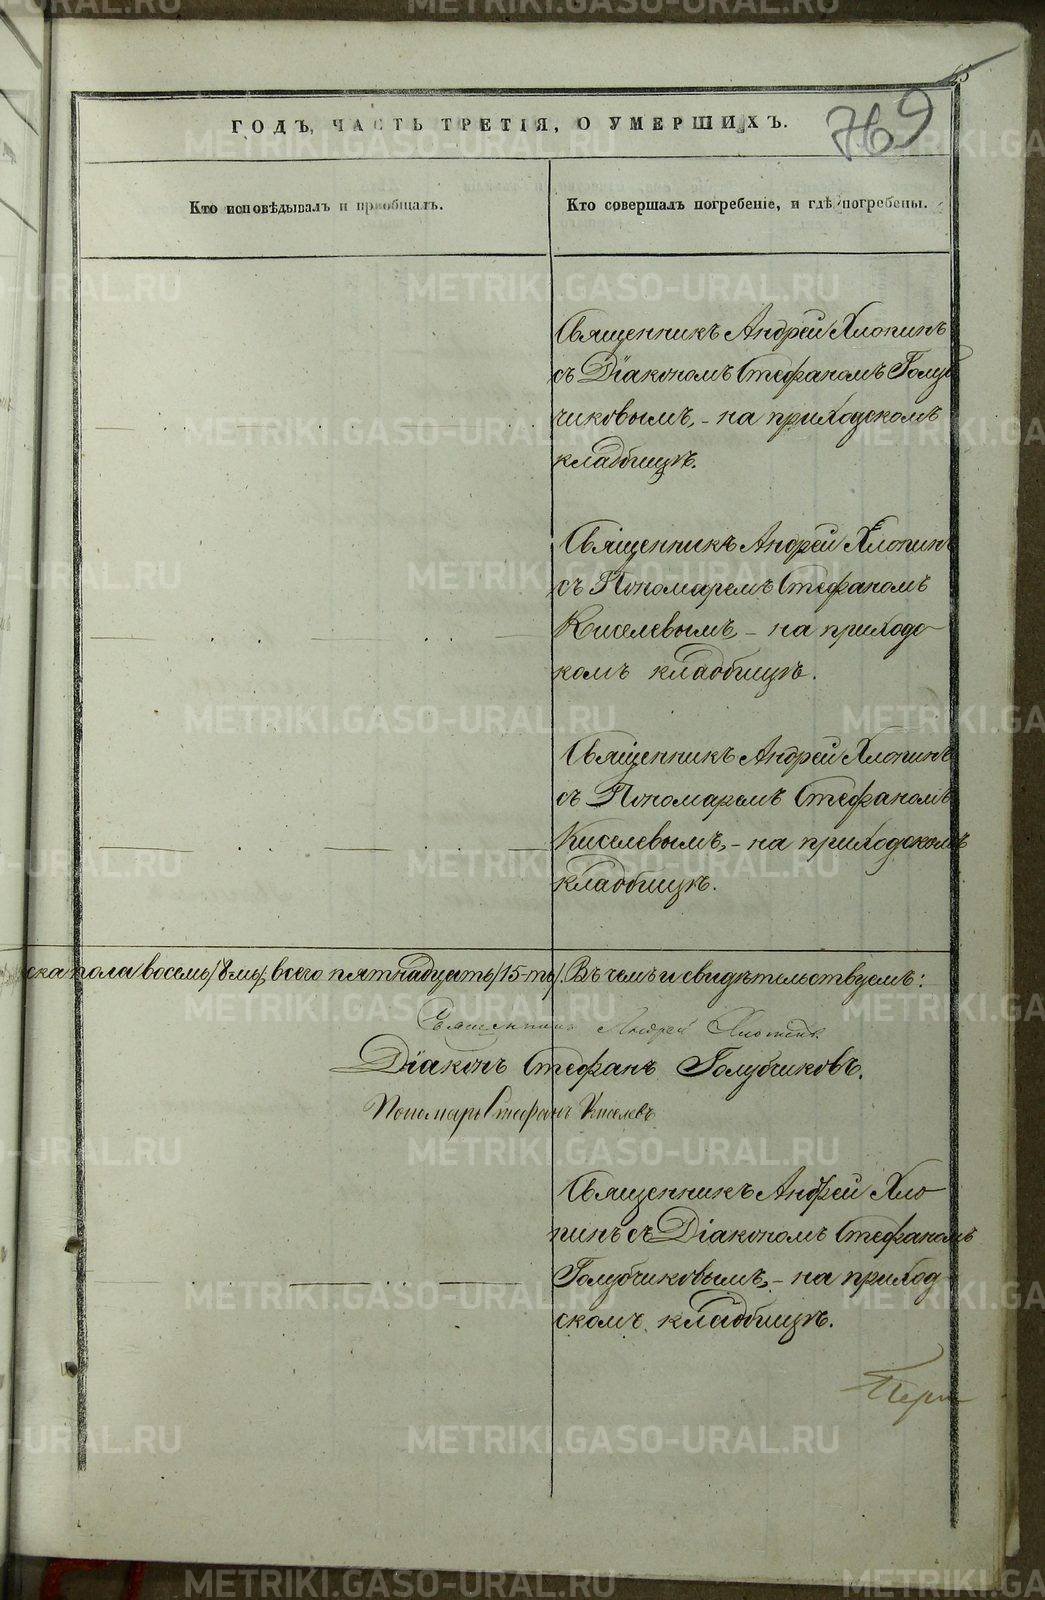 ГОДЪ, ЧАСТЬ ТРЕТІЯ, О УМЕРШИХЪ.
769
Кто исповѣдывалъ и пріобщалъ.
Кто совершалъ погребеніе, и гдѣ погребены.
Священникъ Андрей Хлопинъ
съ Діакономъ Стефаномъ Голуб
чиковымъ, - на приходскомъ
кладбищѣ.
Священникъ Андрей Хлопинъ
съ Пономаремъ Стефаномъ
Киселевымъ, - на приходс-
комъ кладбищѣ.
Священникъ Андрей Хлопинъ
съ Пономаремъ Стефаномъ
Киселевымъ, - на приходскомъ
кладбищѣ.
ска пола восемь /8мь/, всего пятнадцать /15-ть/. Въ чемъ и свидѣтельствуемъ:
Священникъ Андрей Хлопинъ.
Діаконъ Стефанъ Голубчиковъ.
Пономарь Стефанъ Киселевъ
Священникъ Андрей Хло-
пинъ съ Діакономъ Стефаномъ
Голубчиковымъ, - на приход-
скомъ кладбищѣ.
METRIKI.GASO-URAL.RU